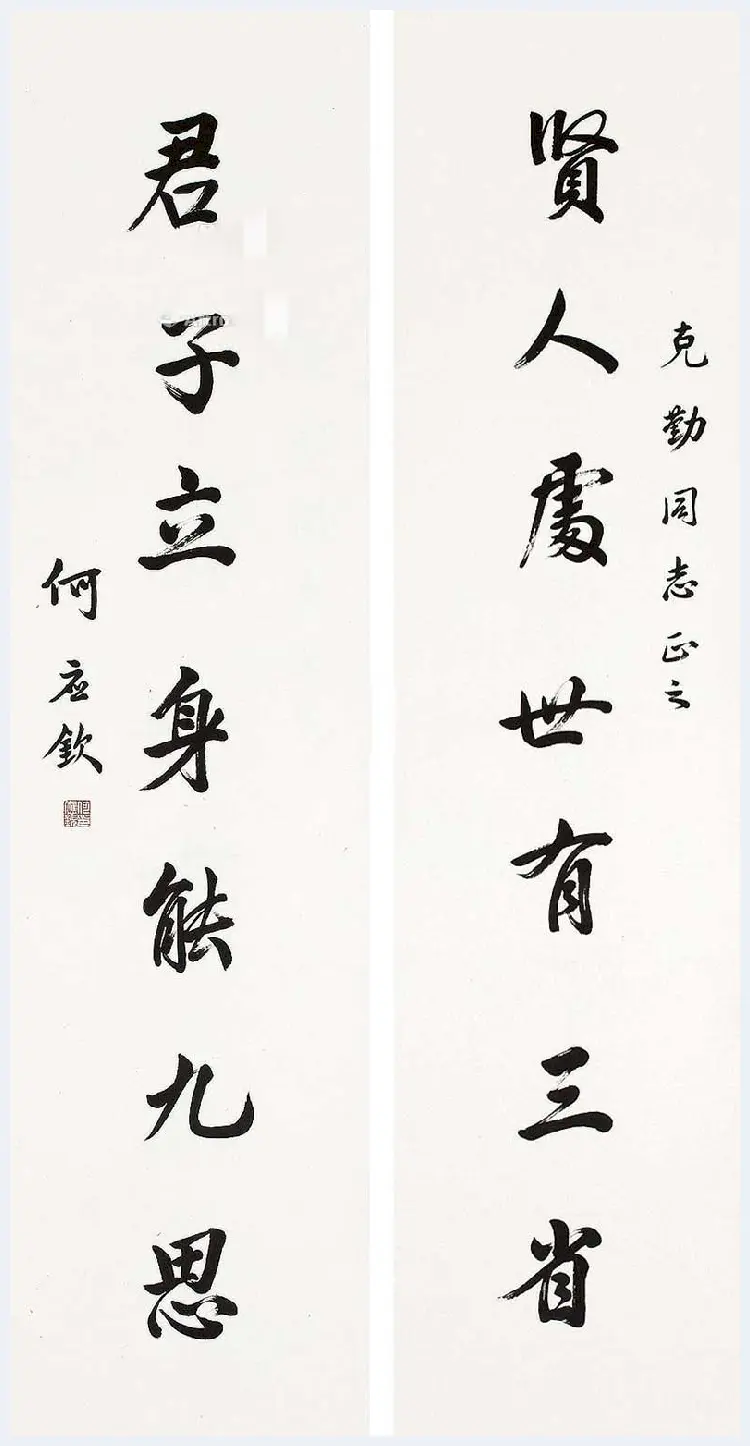 賢人處世有三省
克勤同志正之
君子立身能九思
何应欽